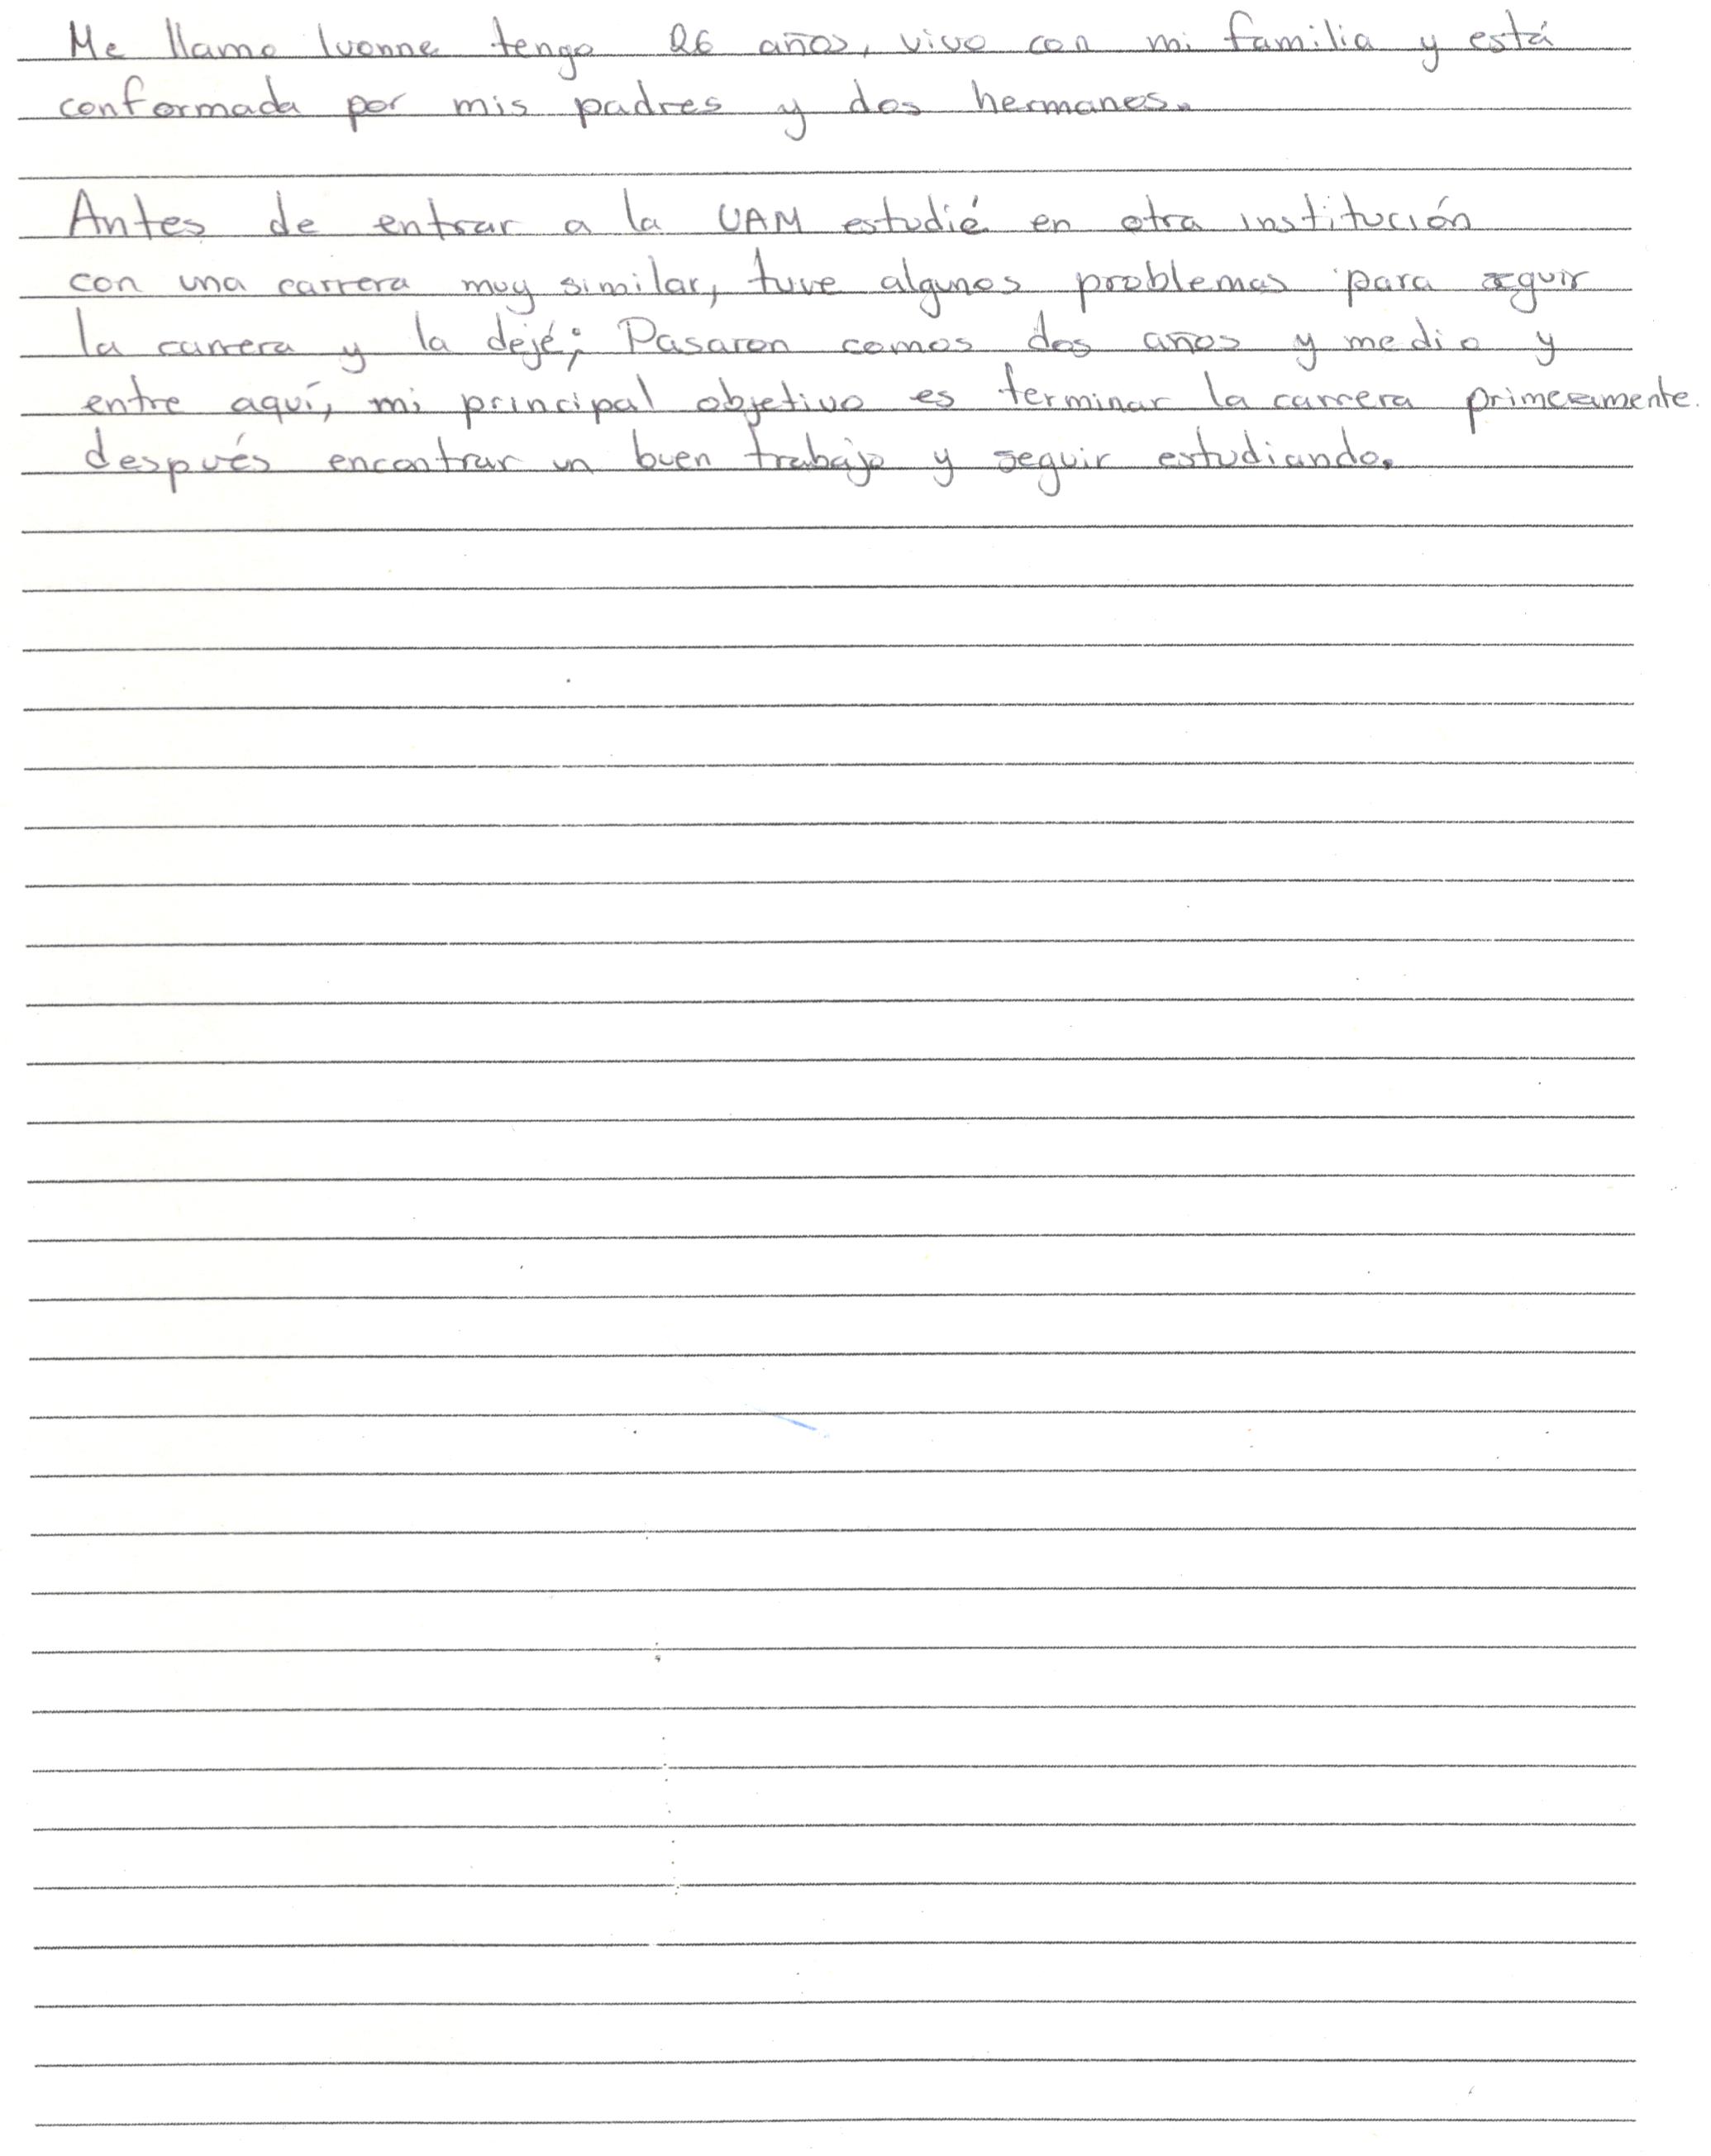 Me llamo Ivonne tengo 26 años, vivo con mi familia y está
conformada por mis padres y dos hermanos.
Antes de entrar a la UAM estudié en otra institución
con una carrera muy similar, tuve algunos problemas para seguir
la carrera y la dejé; Pasaron comos dos años y medio y
entre aquí, mi principal objetivo es terminar la carrera primeramente.
después encontrar un buen trabajo y seguir estudiando.